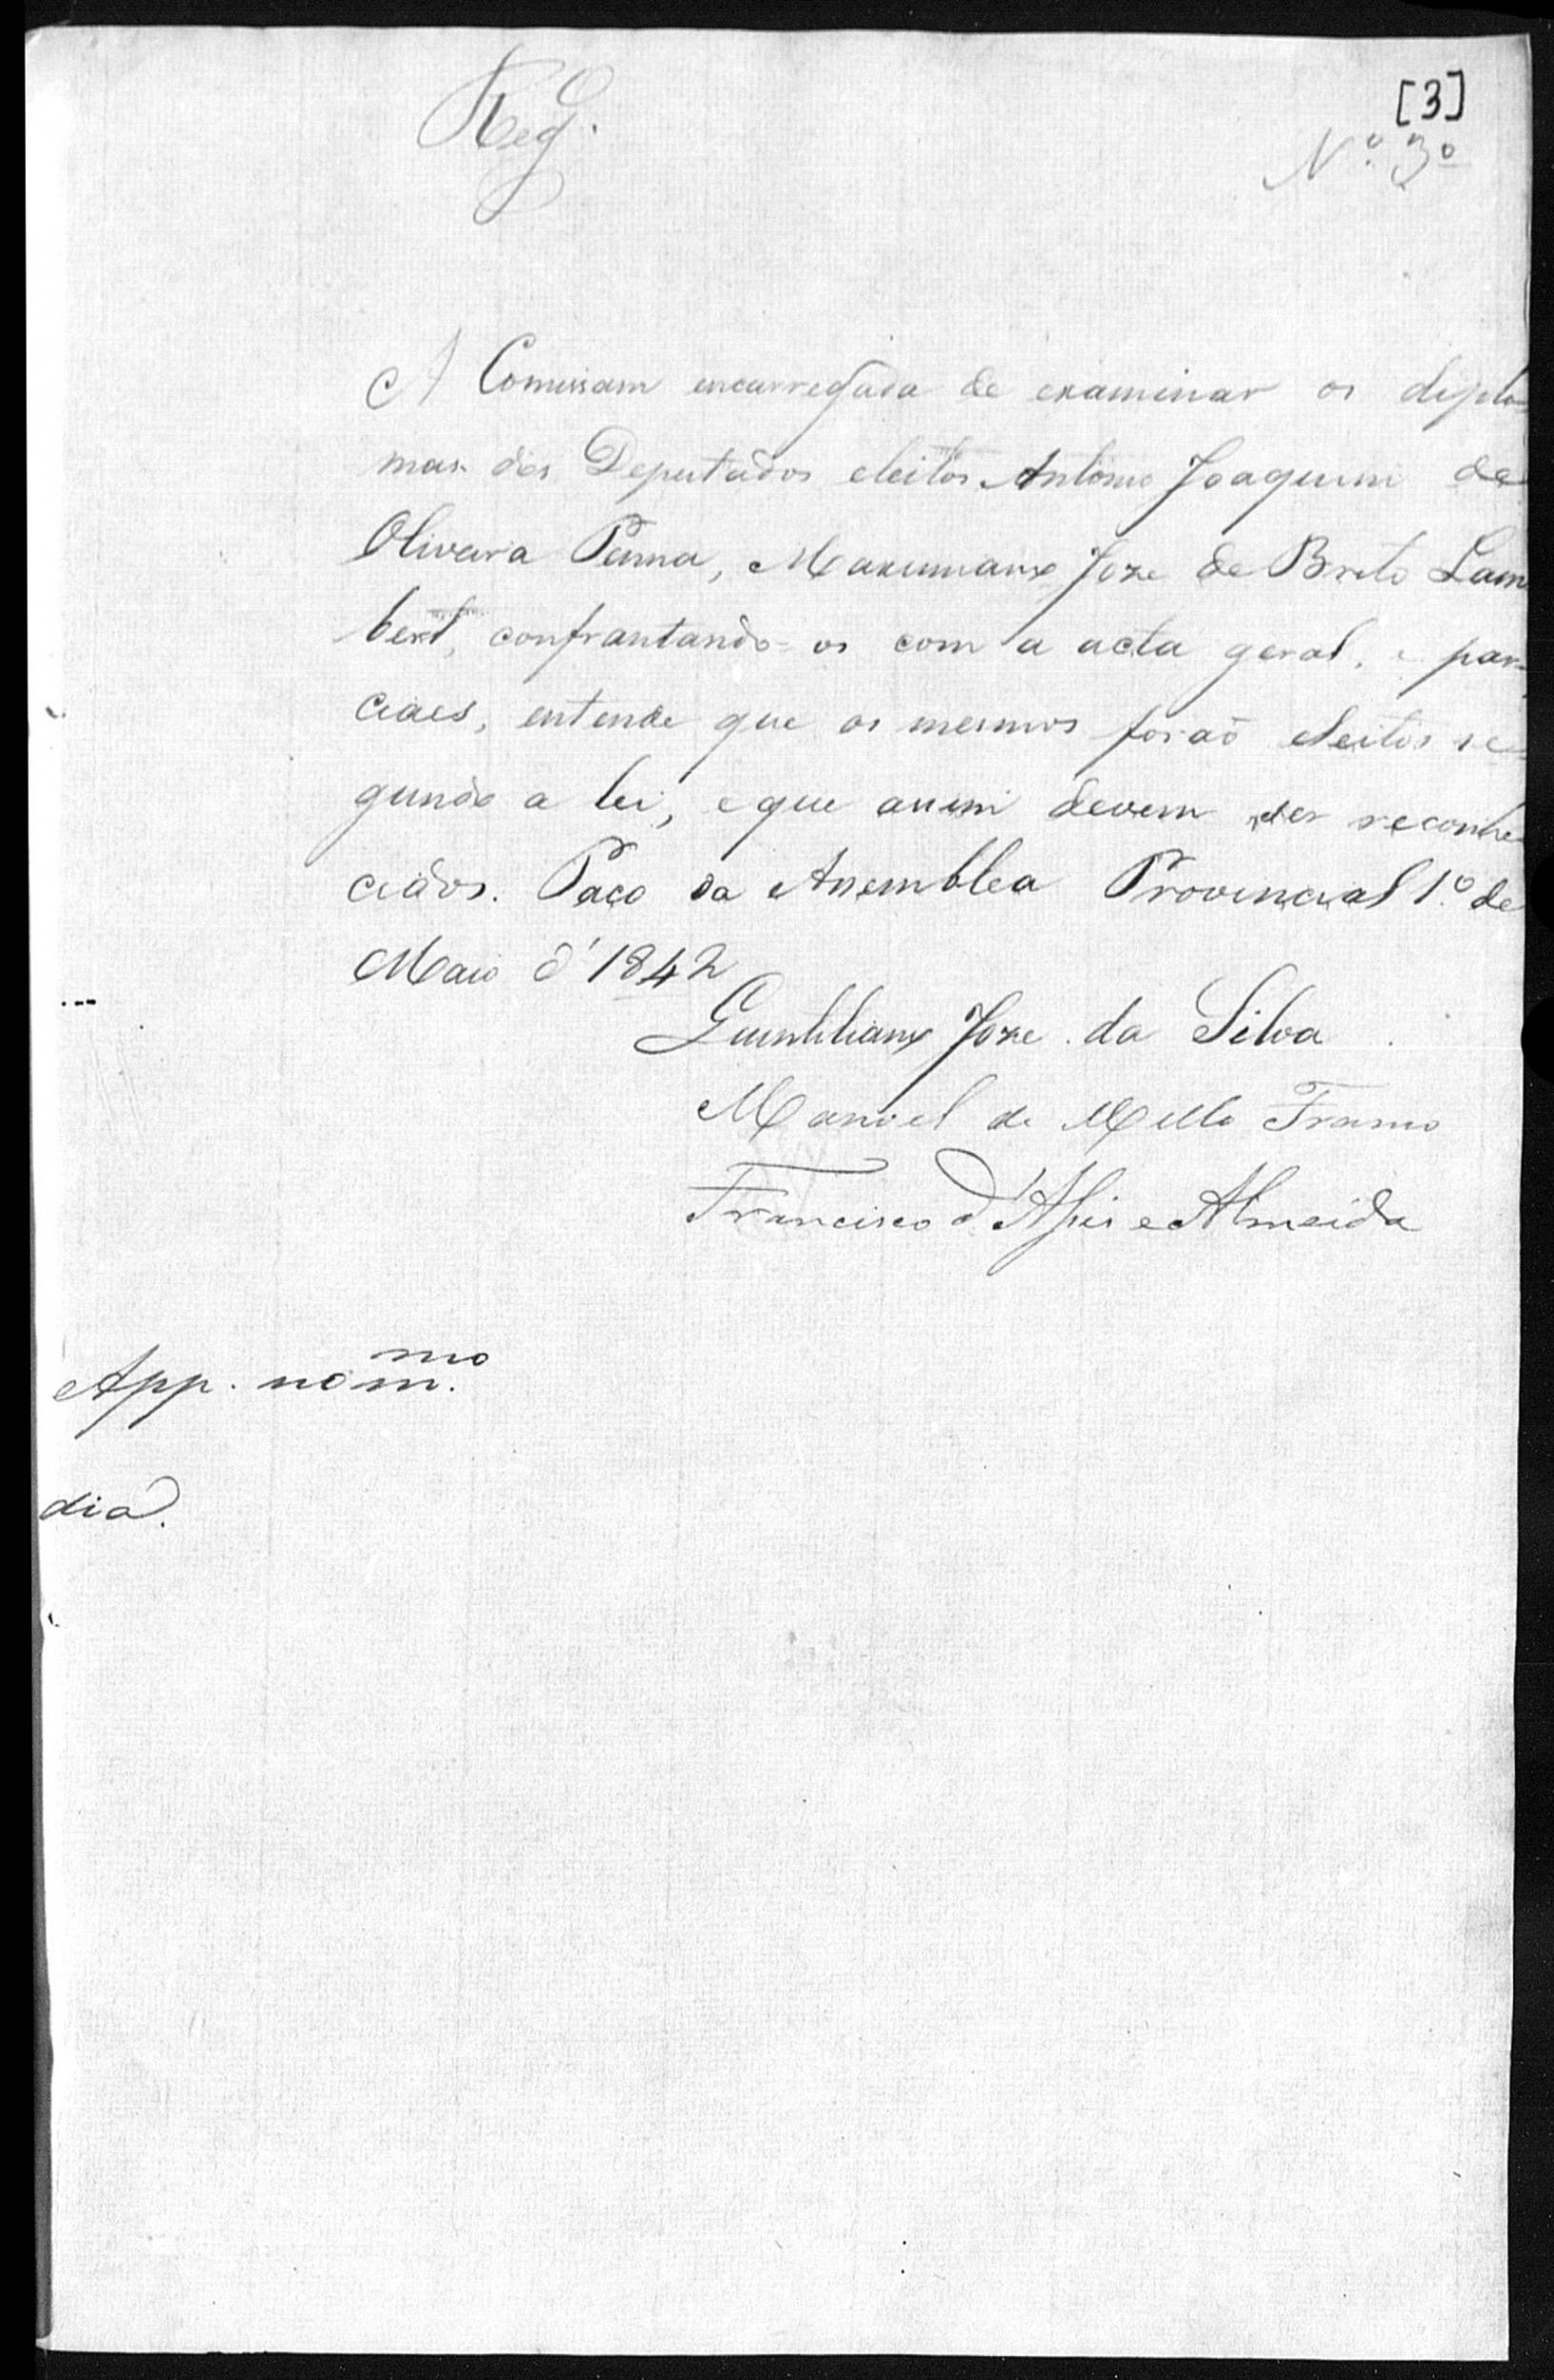 Reg.
[3]
Nº 3º
A Comissam encarregada de examinar os diplo
mas dos Deputados eleitos Antonio Joaquim de
Oliveira Penna, Maximiano Joze de Brito Lam
bert, confrantando-os com a acta geral, e par-
ciaes, entende que os mesmos foraõ eleitos se
gundo a lei, e que assim devem ser reconhe
cidos. Paço da Assemblea Provincial 1º de
Maio d'1842
Quintiliano Joze da Silva
Manoel de Mello Franco
Francisco d'Assis e Almeida
App. no m.mo
dia.